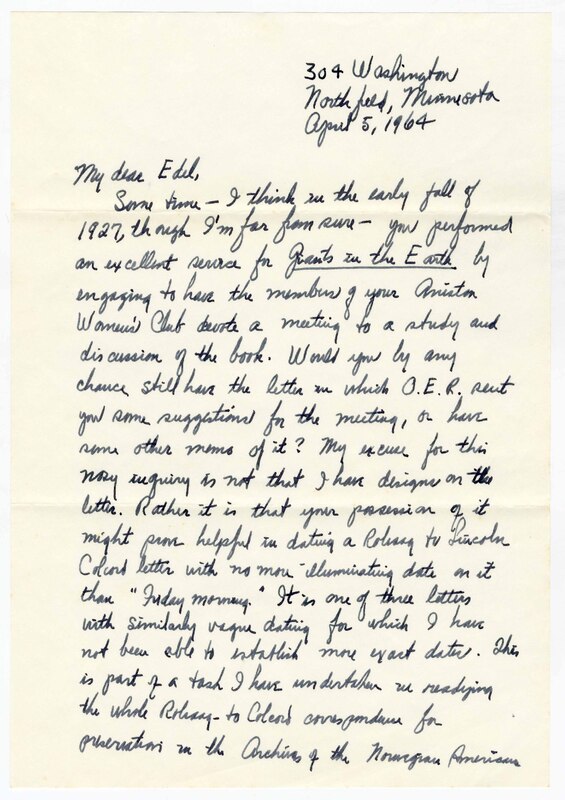 304 Washington
Northfield, Minnesota
April 5, 1964
My dear Edel,
Some time - I think in the early fall of
1927, though I'm far from sure - you performed
an excellent service for Giants in the Earth by
engaging to have the members of your Aniston
Women's Club devote a meeting to a study and
discussion of the book. Would you by any
chance still have the letter in which O.E.R. sent
you some suggestions for the meeting, or have
some other memo of it? My excuse for this
nosy inquiry is not that I have designs on the
letter. Rather it is that your possession of it
might prove helpful in dating a Rolvaag to Lincoln
Colcord letter with no more illuminating date on it
than "Friday morning." It is one of three letters
with similarly vague dating for which I have
not been able to establish more exact dates. This
is part of a task I have undertaken in readying
the whole Rolvaag-to Colcord correspondence for
preservation in the Archives of the Norwegian American